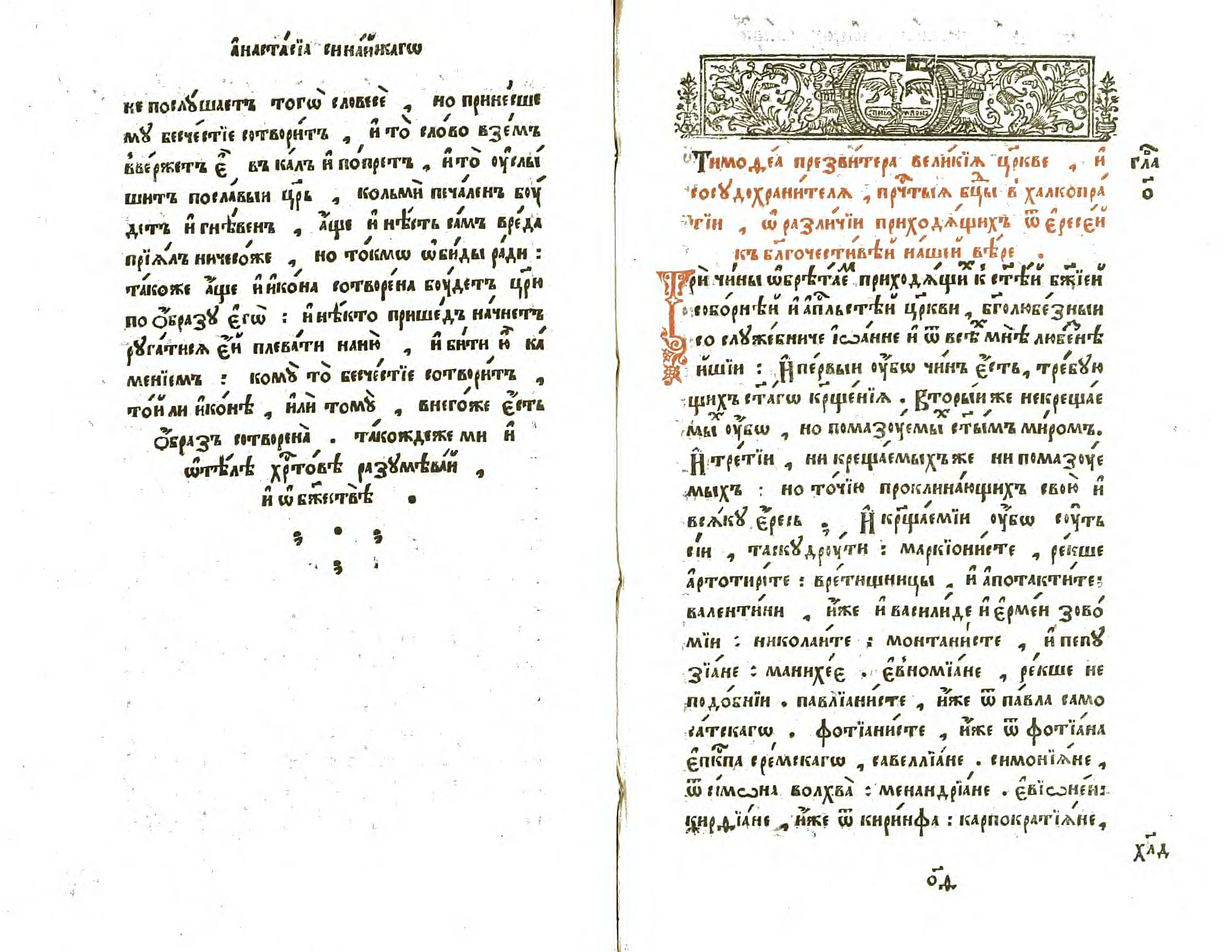 а҆наста́сїа сина́йскагѡ
не послꙋ́шаетъ тогѡ̀ словесѐ , но прине́сше
мꙋ̀ бесче́стїе сотвори́тъ , и҆ то̀ сло́во взе́мъ
вве́ржетъ є҆̀ въ ка́лъ и҆ попре́тъ , и҆ то̀ оу҆слы́
шитъ посла́выи цр҃ь , кольмѝ печа́ленъ боу́
детъ и҆ гнѣ́венъ , а҆́ще и҆ нѣ́сть са́мъ вре́да
прїѧ́лъ ничесо́же , но то́кмѡ ѡ҆би́ды ра́ди :
та́коже а҆́ще и҆ и҆ко́на сотворена̀ боу́детъ цр҃ю̀
по ѻ҆́бразꙋ є҆гѡ̀ : и҆ нѣ́кто прише́дъ начне́тъ
рꙋга́тисѧ є҆́й плева́ти на ню̀ , и҆ би́ти ю҆̀ ка́
менїемъ : комꙋ̀ то̀ бесче́стїе сотвори́тъ ,
то́й ли и҆ко́нѣ , и҆лѝ томꙋ̀ , в него́же є҆́сть
ѻ҆́бразъ сотворена̀ . та́кождеже ми и҆
ѡ҆ тѣ́лѣ хрⷭ҇то́вѣ разꙋмѣва́й ,
и҆ ѡ҆ бж҃ествѣ̀ .
Тимоѳе́а презви́тера вели́кїѧ цр҃кве , и҆
сосꙋдохрани́телѧ , пречⷭ҇тыѧ бцⷣы в халкопра́
тїи , ѡ҆ разли́чїи приходѧ́щихъ ѿ є҆ресе́й
къ бл҃гочести́вѣй на́шей вѣ́ре .
гла́
о҃
Трѝ чи́ны ѡ҆брѣта́еⷨ приходѧ́щиⷯ к ст҃ѣ́й бж҃їей
собо́рнѣй и҆ а҆пⷭ҇льстѣ́й цр҃кви , бг҃олюбе́зныи
со слꙋже́бниче і҆ѡа́нне и҆ ѿ всѣⷯ мнѣ̀ любе́знѣ
йшїи : И҆ пе́рвыи оу҆́бѡ чи́нъ є҆́сть , тре́бꙋю
щихъ ст҃а́гѡ кр҃ще́нїѧ . Вторы́и же некреща́е
мыⷯ оу҆́бѡ , но помазꙋ́емыⷯ ст҃ы́мъ ми́ромъ .
И҆ тре́тїи , ни креща́емыхъ же ни помазꙋ́е
мыхъ : но то́чїю проклина́ющихъ свою̀ и҆
всѧ́кꙋ є҆́ресь ; И҆ кр҃ща́емїи оу҆́бѡ соу́ть
сїѝ , таскꙋдроу́ти : маркїони́сте , ре́кше
а҆ртотири́те : вретищницы , и҆ а҆потакти́те :
валенти́ни , и҆́же и҆ васили́де и҆ є҆рме́и зово́
мїи : николаи́те ; монтани́сте , и҆ пепꙋ
зїа́не : манихе́є . є҆вномїа́не , ре́кше не
подо́бнїи . павлїани́сте , и҆́же ѿ па́вла само
са́тскагѡ . фотїани́сте , и҆́же ѿ фотїа́на
є҆пⷭ҇кпа сре́мскагѡ , савеллїа́не . симонїѧ́не ,
ѿ си́мѡна волхва̀ : менандрїа́не . є҆вїѡне́и :
кирдїа́не , и҆́же ѿ кири́нфа : карпократїѧ́не ,
хл҃д
о҃д